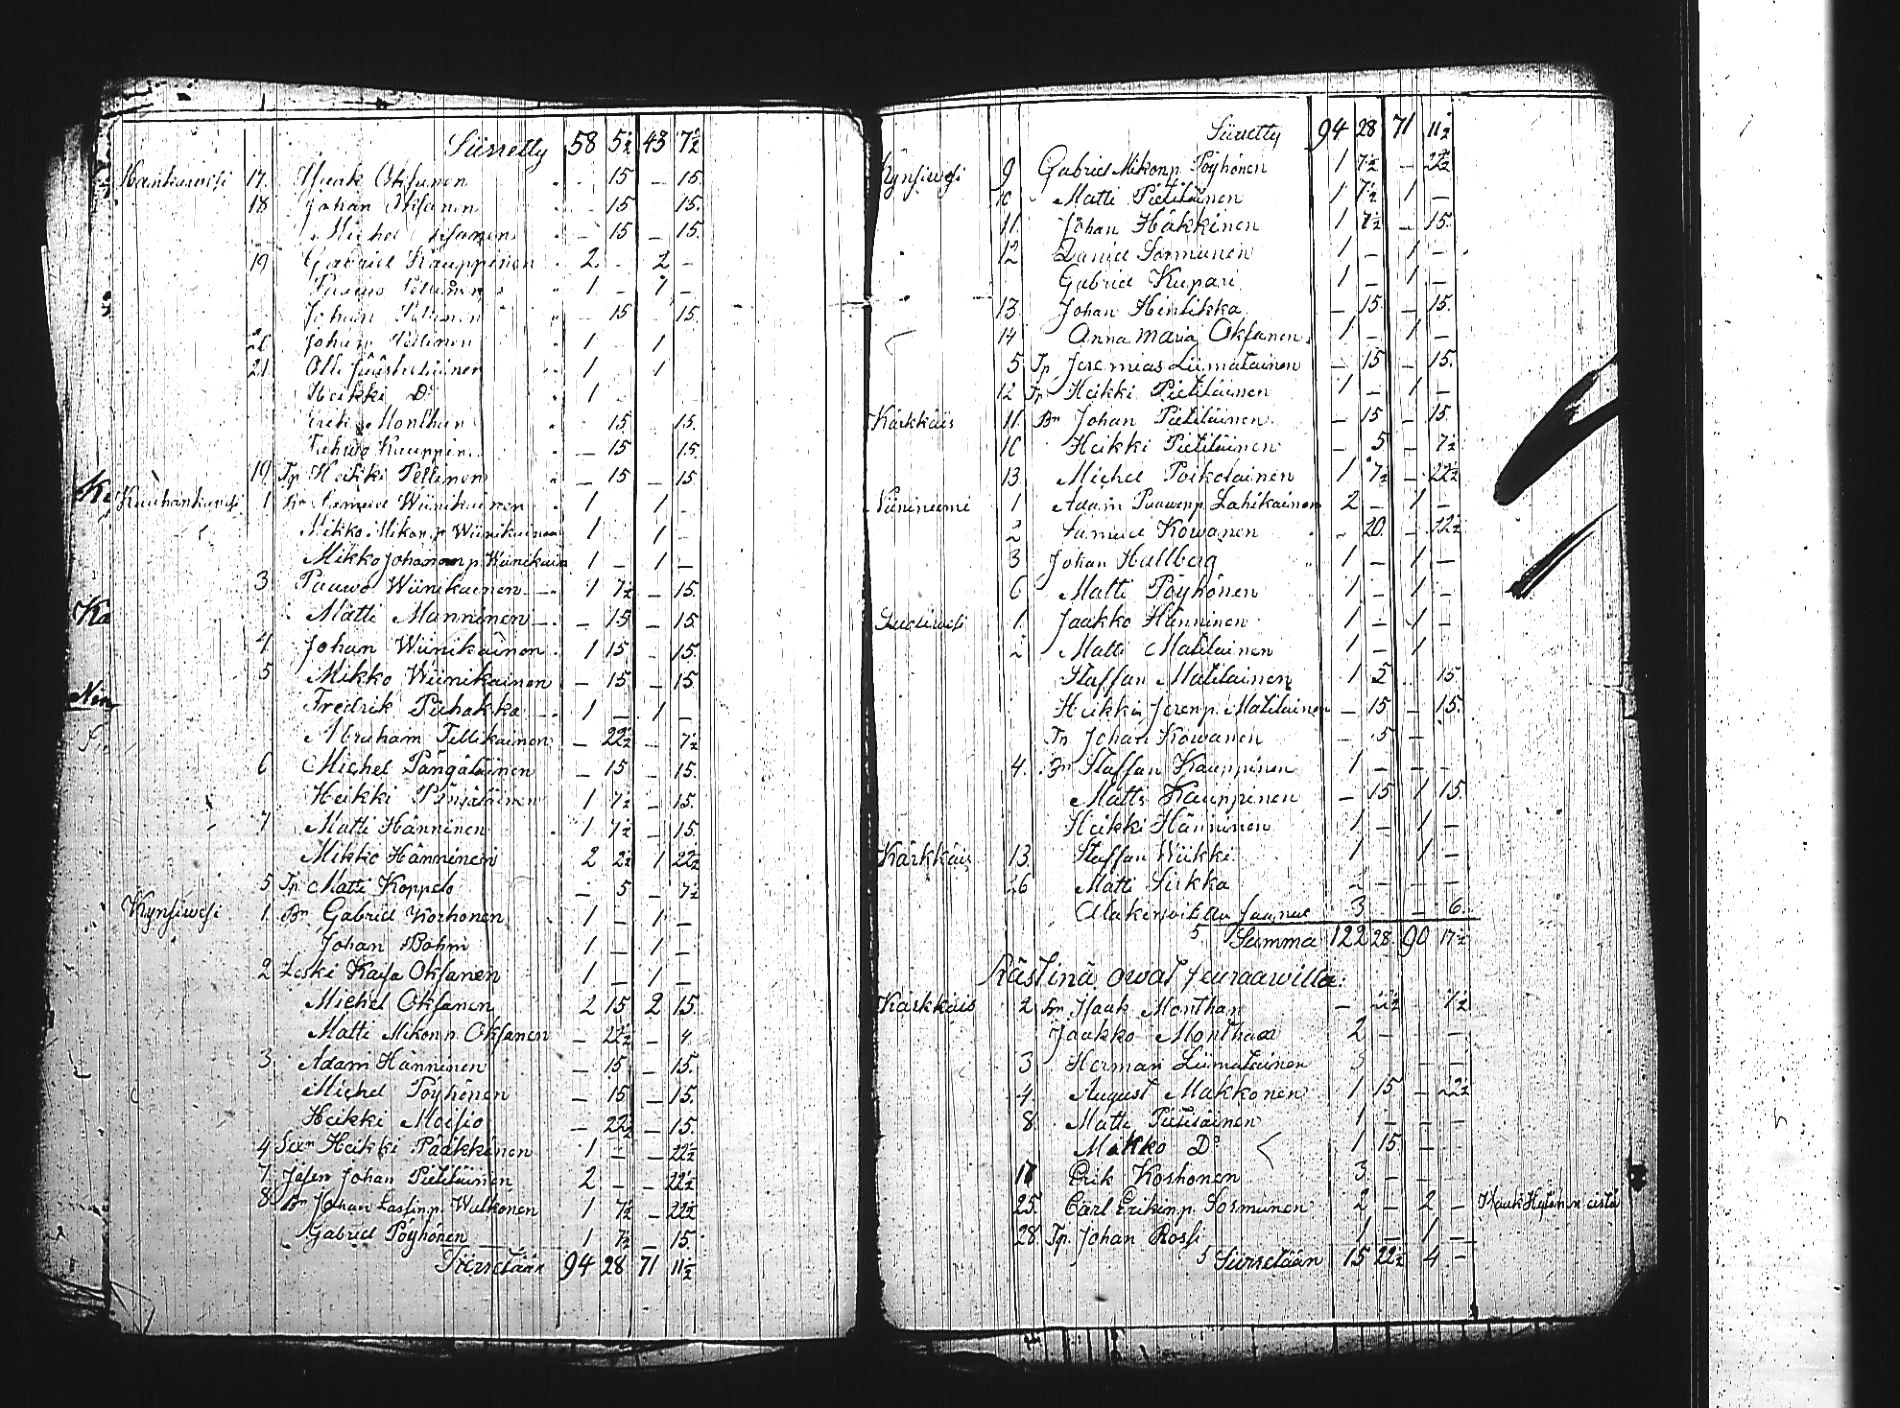 Siirretty 58 5½ 43 7½
Hankawesi 17. Isaak Oksanen - 15 - 15.
18 Johan Oksanen - 15 15.
Michel Oksanen - 15 - 15.
19 Gabriel Kauppinen 2 - 2 -
1 - 1 -
Johan Pellinen 15 15.
20 Johan Pellinen 1 1
21 Olli 1 1
Heikki Do 1
Erik Monthan 15 15.
Kauppin. - 15 15.
19 Tp Heikki Pellinen - 15 - 15
Kuuhankawesi 1 Bn Samuel Wiinikainen 1 1
Mikko Mikon.p Wiinikainen 1 1 -
Mikko Johanan p. Wiinikain. 1 - 1 -
3 Paawo Wiinikainen 1 7½ - 15.
Matti Manninen - 15 - 15
4 Johan Wiinikainen 1 15 - 15
5 Mikko Wiinikainen - 15 - 15
Fredrik Puhakka 1 - 1 -
Abraham Tillikainen - 22½ - 7½
6 Michel Pängäläinen - 15 - 15.
Heikki Pängäläinen 1 7½ - 15.
7 Matti Hänninen 1 7½ - 15.
Mikko Hänninen 2 2½ 1 22½
5 Tp Matti Koppelo - 5 - 7½
Kynsiwesi 1. Bn Gabriel Korhonen 1 - 1 -
Johan Böhm 1 - 1 -
2 Leski Kaisa Oksanen 1 - 1 -
Michel Oksanen 2 15 2 15
Matti Mikon p. Oksanen - 22½ - 4
3 Adam Hänninen - 15 - 15.
Michel Pöyhönen - 15 - 15.
Heikki Moisio - 22½ - 15
4 Heikki Pääkkönen 1 - - 22½
7 Johan Pietiläinen 2 - - 22½
8 Bn Johan Lassin p. Walkonen 1 7½ - 22½
Gabriel Pöyhönen 1 7½ - 15.
Siirretään 94 28 71 11½
Siirretty 94 28 71 11½
Kynsiwesi 9 Gabriel Mikonp Pöyhönen 1 7½ - 22½
10 Matti Pietiläinen 1 7½ 1 -
11 Johan Häkkinen 1 7½ - 15.
12 Daniel Sormunen 1 - 1 -
Gabriel Kupari 1 - 1 -
13. Johan Hintikka - 15 - 15.
14 Anna Maria Oksanen 1 - 1 -
5 Tp Jeremias Liimatainen - 15 - 15.
12 Tp Heikki Pietiläinen 1 - 1 -
Kärkkäis 11 Bn Johan Pietiläinen - 15 - 15.
10 Heikki Pietiläinen - 5 - 7½
13. Michel Poikolainen 1 7½ - 22½
Niininiemi 1 Adam Paawonp Lahikainen 2 - 1 -
2 Samuel Kowanen - 20 - 22½
3 Johan Hallberg 1 - 1 -
6 Matti Pöyhönen 1 - 1 -
1. Jaakko Hänninen 1 - 1 -
2 Matti Matilainen 1 - 1
Staffan Matilainen 1 5 15.
Heikki Matilainen - 15 - 15.
Tp Johan Kowanen - 5 -
4. Bn Staffan Kauppinen 1 - - -
Matts Kauppinen - 15 1 15.
Heikki Hänninen 1 - 1 -
Kärkkäis 13. Staffan Wiikki 1 1 -
26 Matti Siikka - - -
3 - 6.
Summa 122 28 90 17½
Kästinä owat seuraawilta:
Kärkkäis 2 Bn Isaak Monthan - 22½ 7½
Jaakko Monthan 2 - -
3 Herman Liimatainen 3 - -
4 August Makkonen 1 15 - 22½
8 Matti Pietiläinen 1 - - -
Mikko Do 1 15 - -
17 Erik Koshonen 3 - - -
25. Carl Erikinp Sormunen 2 - 2 -
28. Tp. Johan Rossi 1 - 1 -
Siirretään 15 22½ 4 -